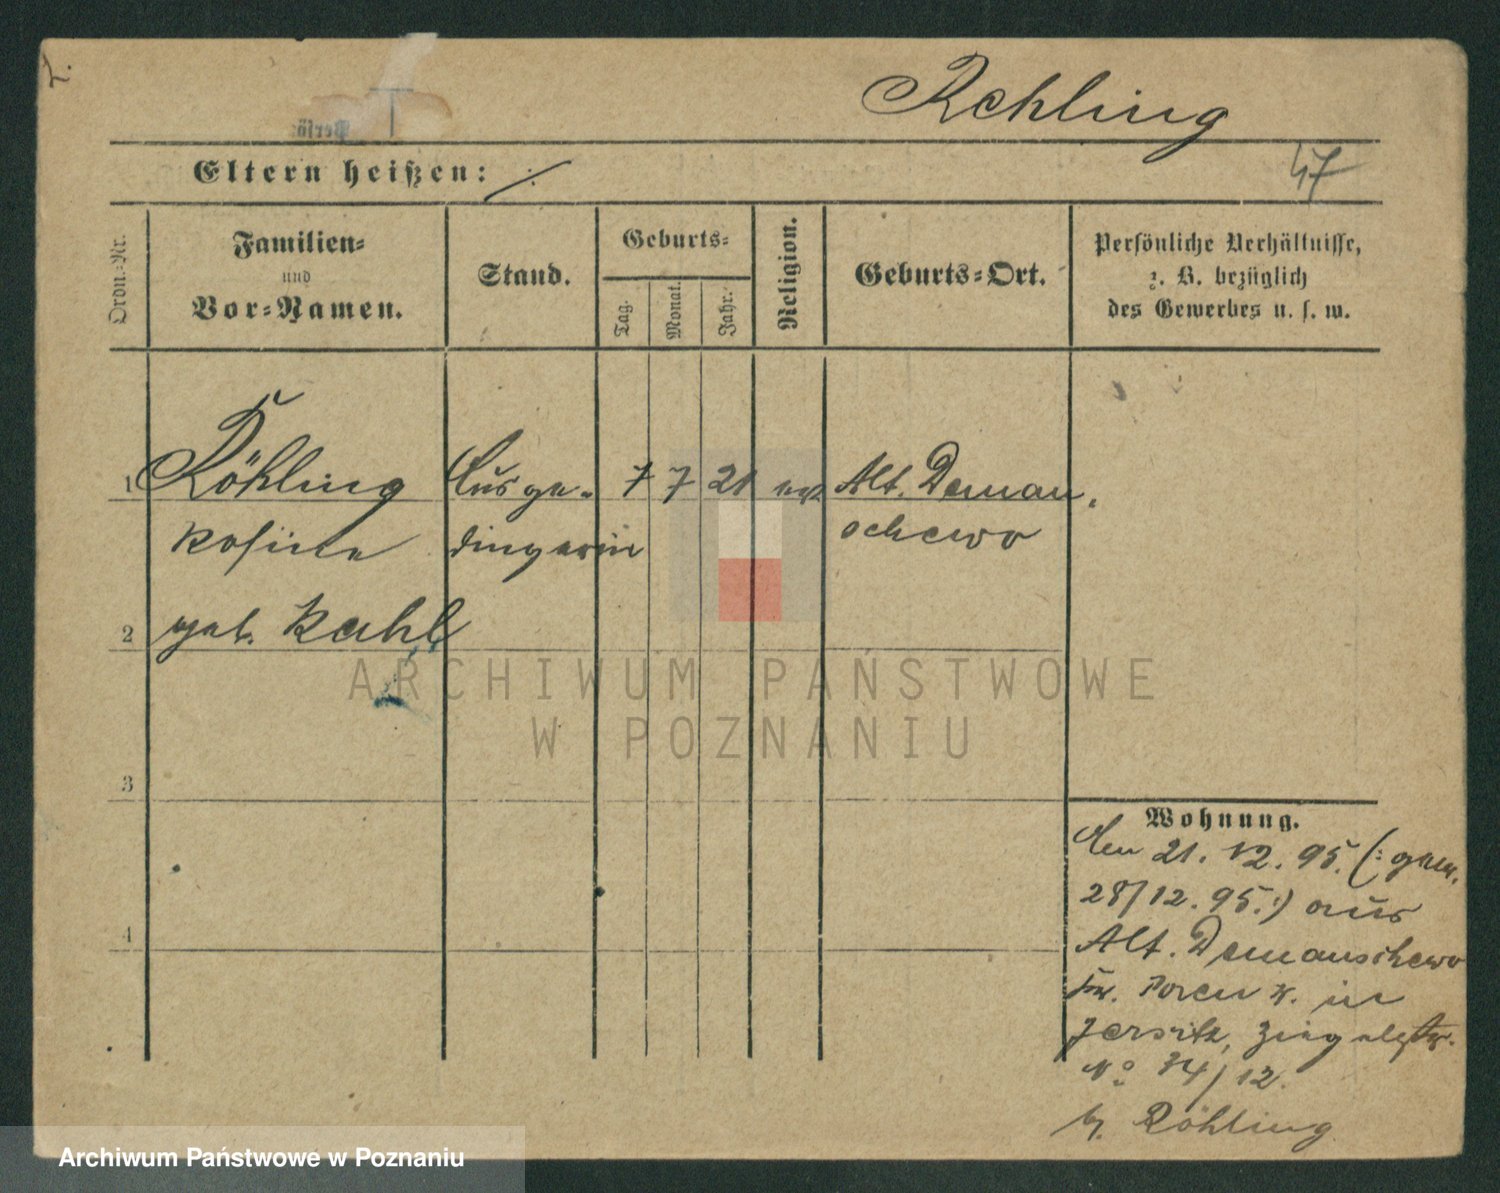 Rehling
Eltern heißen: ./.
47
Ordn.=Nr.
Familien=
und
Vor=Namen.
Stand.
Geburts=
Tag.
Monat.
Jahr.
Religion.
Geburts=Ort.
Persönliche Verhältnisse,
z. B. bezüglich
des Gewerbes u. s. w.
1 Röhling Ausge- 7 7 21 Alt. Deman
Rosine dingerin schewo
2 geb. Kahl
3
4
Wohnung.
Den 21. 12. 95. (: gem.
28/12. 95. :) aus
Alt. Demanschewo
Kr. Posen W. in
Jersitz, Ziegelstr.
No 34/12.
b. Röhling
ARCHIWUM PAŃSTWOWE
W POZNANIU
Archiwum Państwowe w Poznaniu